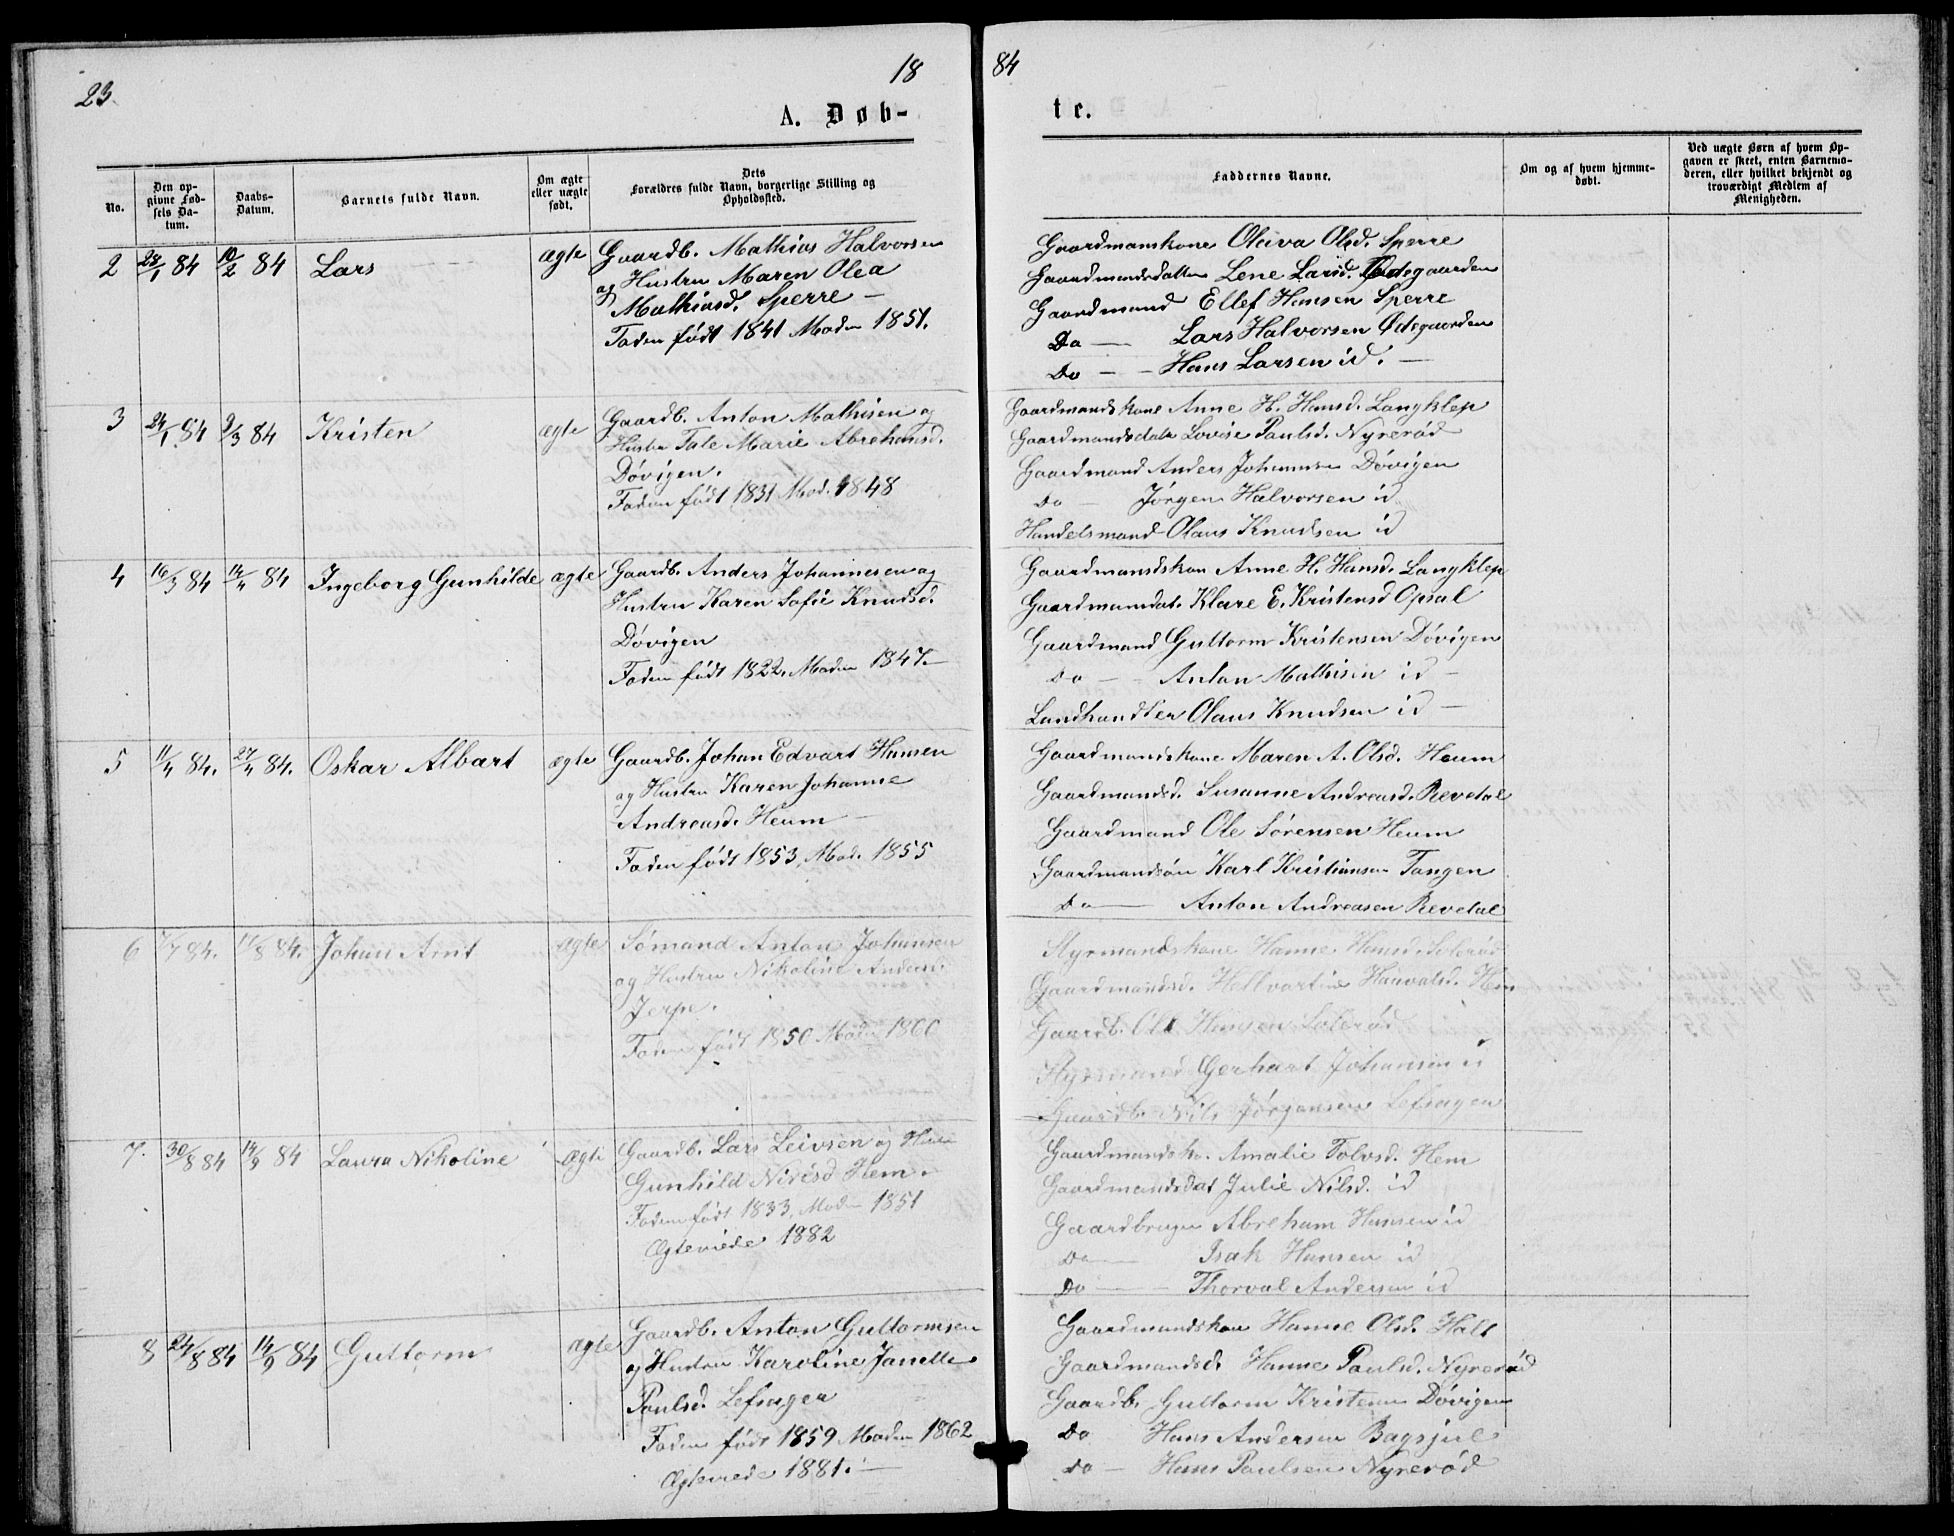 23.
18
84
A. Døb-
te.
No.
Den op-
givne Fød-
sels Da-
tum.
Daabs-
Datum.
Barnets fulde Navn.
Om ægte
eller uægte
født.
Dets
Forældres fulde Navn, borgerlige Stilling og
Opholdssted.
Faddernes Navne.
Om og af hvem hjemme-
døbt.
Ved uægte Børn af hvem Op-
gaven er skeet, enten Barnemo-
deren, eller hvilket bekjendt og
troværdigt Medlem af
Menigheden.
2 28/1 84 10/2 84 Lars ægte Gaardb. Mathias Halvorsen
og Hustru Maren Olea
Mathiasd. Sperre –
Faden født 1841 Moden 1851.
Gaardmanskone Oleiva Olsd. Sperre
Gaardmandsdatter Lene Larsd. Ødegaarden
Gaardmand Ellef Hansen Sperre
Do — Lars Halvorsen Ødegaarden
Do — Hans Larsen id. —
3 24/1 84 9/3 84 Kristen ægte Gaardb. Anton Mathisen og
Hustru Tale Marie Abrehamsd.
Døvigen.
Faden født 1831 Mod. 1848
Gaardmandskone Anne H. Hansd. Langklep
Gaardmandsdatr Lovise Paulsd. Nyrerød
Gaardmand Anders Johannesen Døvigen
Do — Jørgen Halvorsen id
Handelsmand Olaus Knudsen id
4 16/3 84 14/4 84 Ingeborg Gunhilde ægte Gaardb. Anders Johannesen og
Hustru Karen Sofie Knudsd.
Døvigen
Faden født 1822. Moden 1847. –
Gaardmandskon Anne H. Hansd. Langklep
Gaardmandat. Klare E. Kristensd Opsal
Gaardmand Guttorm Kristensen Døvigen
Do — Anton Mathisin id –
Landhandler Olaus Knudsen id –
5 11/4 84. 27/4 84. Oskar Albart ægte Gaardb. Johan Edvart Hansen
og Hustru Karen Johanne
Andreasd. Heum –
Faden født 1853, Mod. 1855
Gaardmandskone Maren A. Olsd. Heum
Gaardmandsd. Susanne Andreasd. Revetal
Gaardmand Ole Sørensen Heum
Gaardmandsøn Karl Kristiansen Tangen
Do — Anton Andreasen Revetal
6 7/7 84. 17/8 84. Johan Arnt ægte Sømand Anton Johansen
og Hustru Nikoline Andersd.
Jerpe.
Faden født 1850 Moden 1860
Styrmandskone Hanne Hansd. Solerød
Gaardmandsd. Hellvartine Hauvalsd. Hem
Gaardb. Ole Hansen Solerød
Styrmand Gerhart Johansen id
Gaardb. Nils Jørgensen Lefsagen
7. 30/8 84 14/9 84 Laura Nikoline ægte Gaardb. Lars Leivsen og Hustru
Gunhild Nirisd Hem.
Faden født 1833, Moden 1851
Ægteviede 1882
Gaardmandsko. Amalie Tolvsd. Hem
Gaardmandsdat Julie Nilsd. id
Gaardbruger Abreham Hansen id
Do — Isak Hansen id
Do — Thorval Andersen id
8 24/8 84 14/9 84 Guttorm ægte Gaardb. Anton Guttormsen
og Hustru Karoline Janette
Paulsd. Lefsagen
Faden født 1859 Moden 1862
Ægteviede 1881. —
Gaardmandskon Hanne Olsd. Holt
Gaardmandsd. Hanne Paulsd. Nyrerød
Gaardb. Guttorm Kristensen Døvigen
Do Hans Andersen Bagsjul
Do — Hans Paulsen Nyrerød